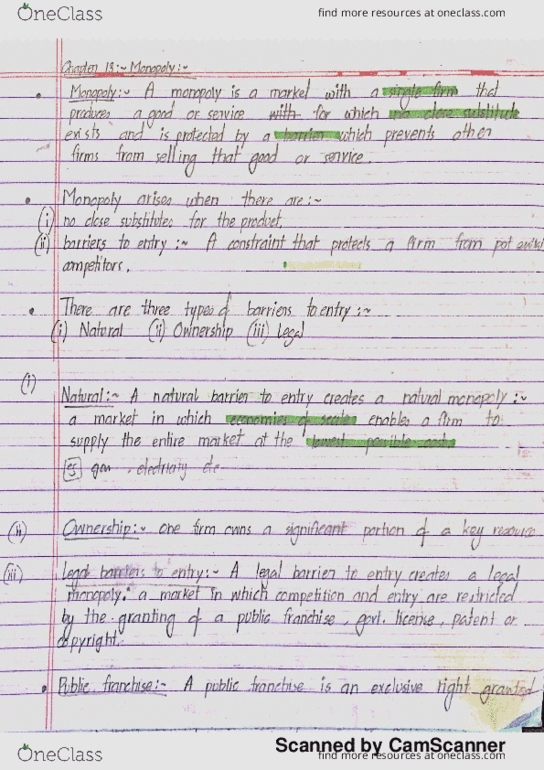 OneClass
find more resources at oneclass.com
Chapter 13:~ Monopoly:~
Monopoly:~ A monopoly is a market with a single firm that
produces a good or service with for which no close substitute
exists and is protected by a barrier which prevents other
firms from selling that good or service.
Monopoly arises when there are:~
(i) no close substitutes for the product.
(ii) barriers to entry:~ A constraint that protects a firm from
competitors.
There are three types of barriers to entry:~
(i) Natural (ii) Ownership (iii) Legal
(i)
Natural:~ A natural barrier to entry creates a natural monopoly:~
a market in which economies of scale enables a firm to
supply the entire market at the lowest possible
eg gas, electricity etc
(ii) Ownership:~ one firm owns a significant portion of a key resource
(iii) Legal barriers to entry:~ A legal barrier to entry creates a legal
monopoly: a market in which competition and entry are restricted
by the granting of a public franchise, govt. license, patent or
copyright.
Public franchise:~ A public franchise is an exclusive right granted
Scanned by CamScanner
OneClass
find more resources at oneclass.com